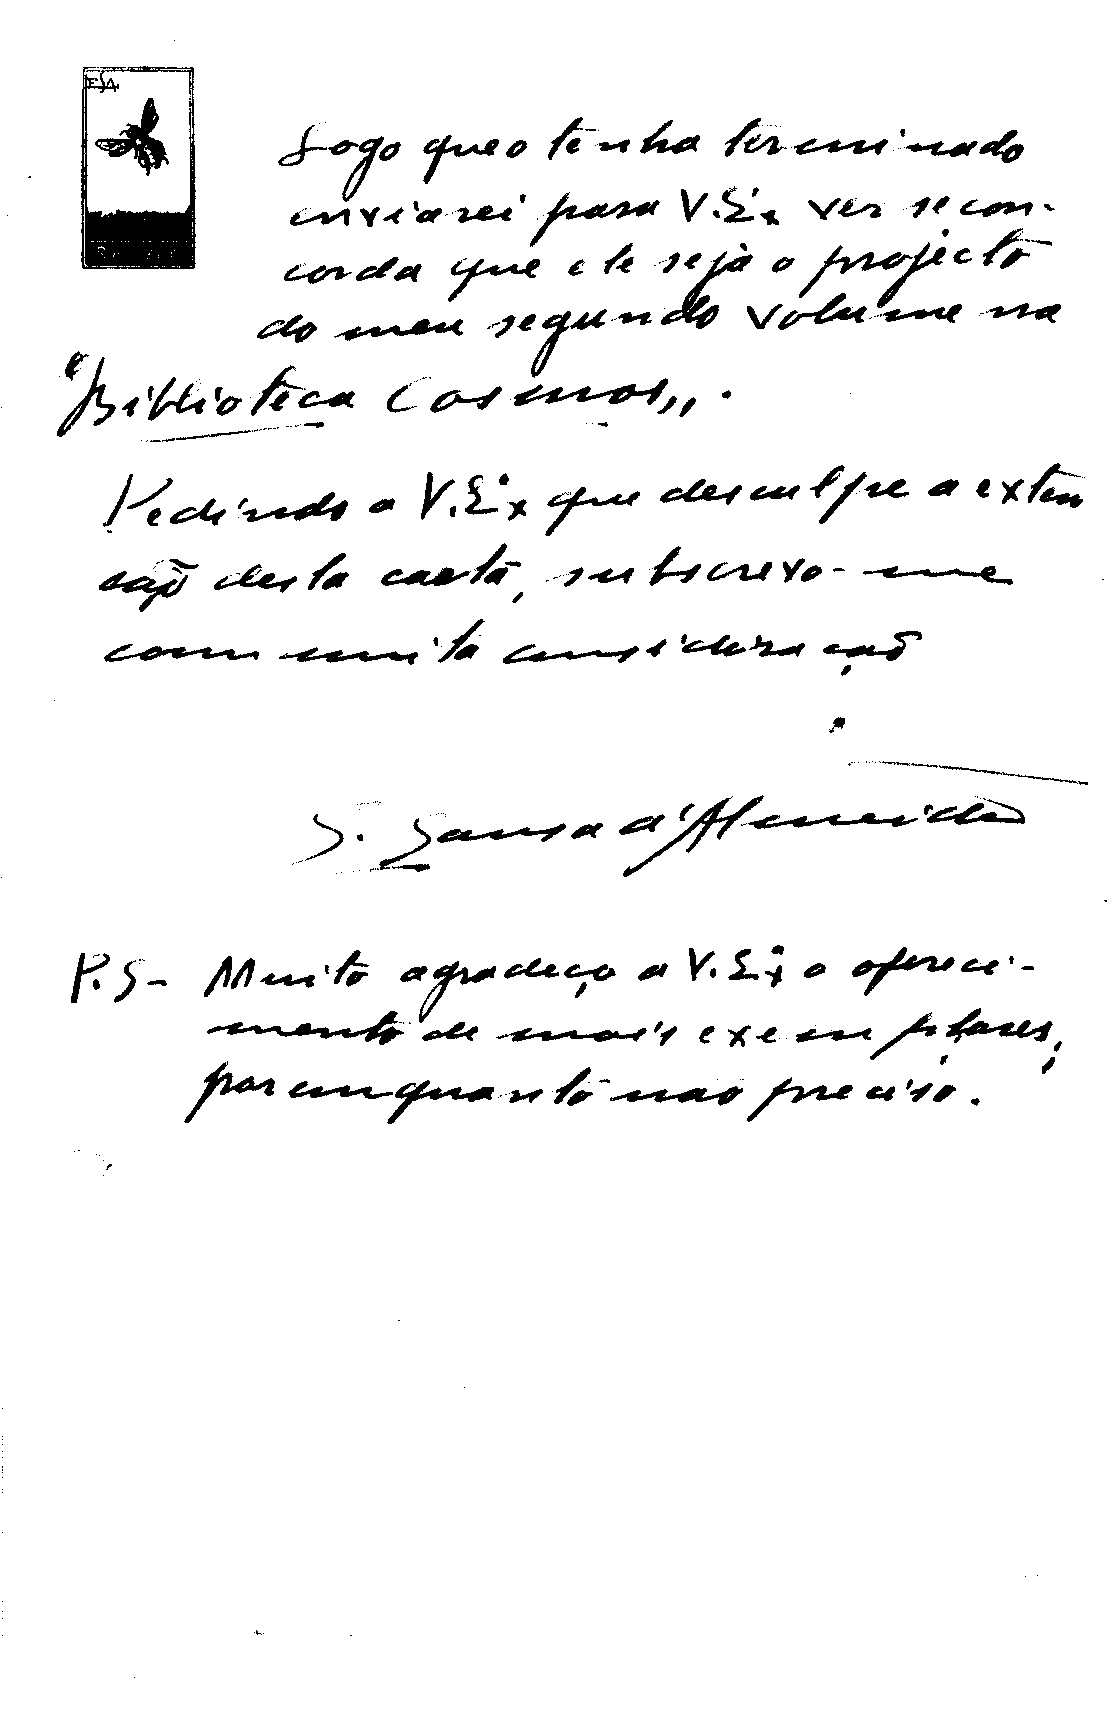 E.S.A.
Logo que o tenha terminado
enviarei para V. Ex. ver se con-
corda que ele seja o projecto
do meu segundo volume na
"Biblioteca Cosmos".
Pedindo a V. Ex. que desculpe a exten
ção desta carta, subscrevo-me
com muita consideração
Sousa d'Almeida
P.S- Muito agradeço a V. Ex. o ofereci-
mento de mais exemplares,
por enquanto não preciso.